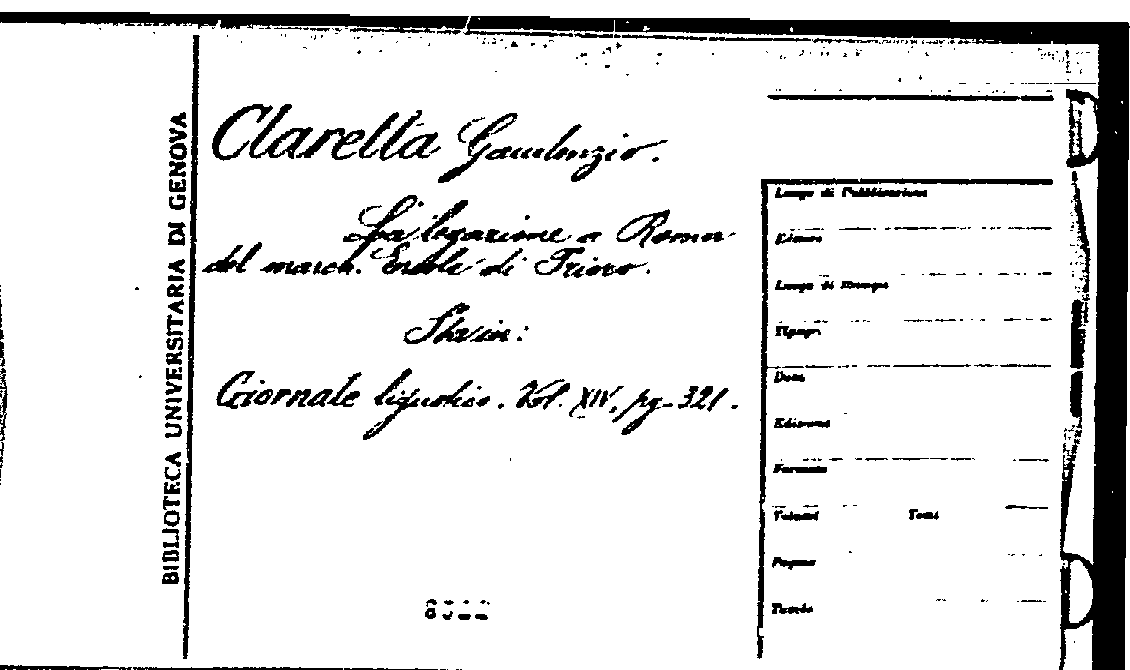 BIBLIOTECA UNIVERSITARIA DI GENOVA
Claretta Gaudenzio.
La legazione a Roma
del march. Ercole di Trino.
Sta in:
Giornale ligustico. Vol. XIV, pg. 321.
Luogo di Pubblicazione
Editore
Luogo di Stampa
Tipogr.
Data
Edizione
Formato
Volumi Tomi
Pagine
Tavole